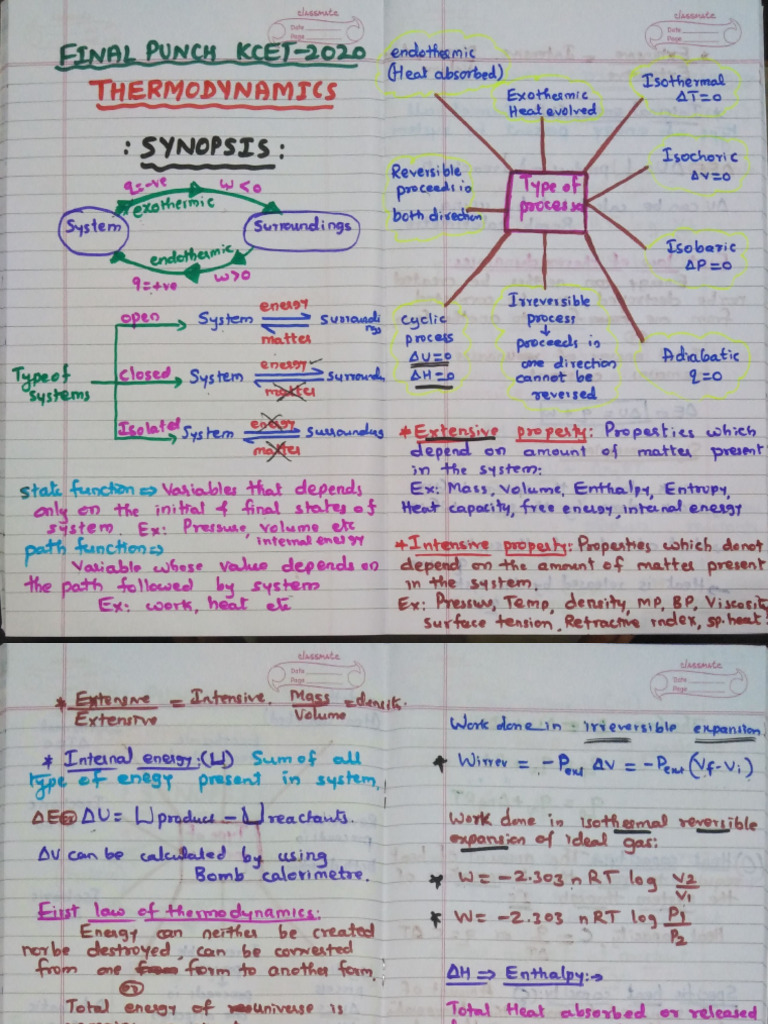 classmate
Date
Page
FINAL PUNCH KCET-2020
THERMODYNAMICS
: SYNOPSIS :
q=-ve w<0
exothermic
System Surroundings
endothermic
q=+ve w>0
Type of systems
open System energy matter surroundings
closed System energy matter surround
Isolated System energy matter surroundings
State function ⇒ Variables that depends
only on the initial & final states of
system. Ex: Pressure, volume etc
internal energy
path function ⇒
Variable whose value depends on
the path followed by system
Ex: work, heat etc
classmate
Date
Page
endothermic
(Heat absorbed)
Exothermic
Heat evolved
Isothermal
ΔT=0
Isochoric
Δv=0
Reversible
proceeds in
both direction
Type of
process
Isobaric
ΔP=0
Cyclic
process
ΔU=0
ΔH=0
Irreversible
process
↓
proceeds in
one direction
cannot be
reversed
Adiabatic
q=0
* Extensive property: Properties which
depend on amount of matter present
in the system:
Ex: Mass, Volume, Enthalpy, Entropy,
Heat capacity, free energy, internal energy
* Intensive property: Properties which donot
depend on the amount of matter present
in the system.
Ex: Pressure, Temp, density, MP, BP, Viscosity,
surface tension, Refractive index, sp.heat.
classmate
Date
Page
* Extensive / Extensive = Intensive. Mass / Volume = density.
* Internal energy:(U) Sum of all
type of enegy present in system.
ΔE or ΔU = U product - U reactants.
ΔU can be calculated by using
Bomb calorimetre.
First law of thermodynamics:
Energy can neither be created
nor be destroyed, can be converted
from one form to another form.
or
Total energy of universe is
classmate
Date
Page
Work done in irreversible expansion
* Wirrev = -Pext ΔV = -Pext (Vf-Vi)
Work done in isothermal reversible
expansion of ideal gas:
* W = -2.303 nRT log V2/V1
* W = -2.303 nRT log P1/P2
ΔH ⇒ Enthalpy:→
Total Heat absorbed or released